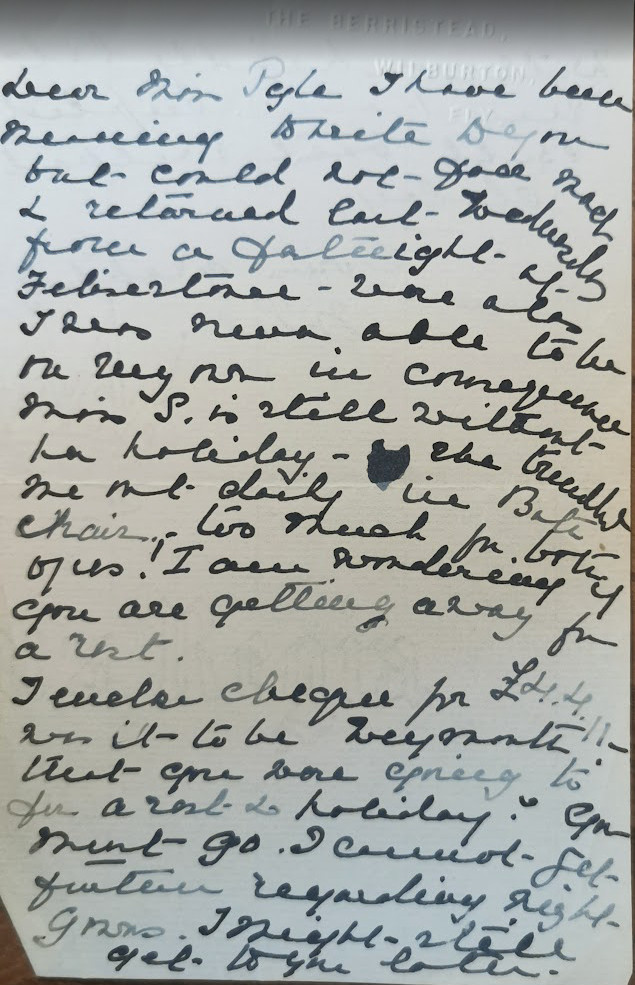 THE BERRISTEAD,
WILBURTON,
ELY.
Dear Miss Pyle I have been
meaning to write to you
but could not - 
& returned last - Wednesday
from a fortnight - at -
Felixstowe - were alas
I was never able to be
on my own in consequence
Miss S. is still without -
her holiday - she trundled
me out - daily in Bath
Chair, - too much for both
of us! I am wondering
you are getting away for
a rest.
I enclose cheque for £4.4.
was it - to be Weymouth
that you were going to
for a rest & holiday? you
must go. I cannot - get -
further regarding night -
Gowns. I might - still
get - to you later.